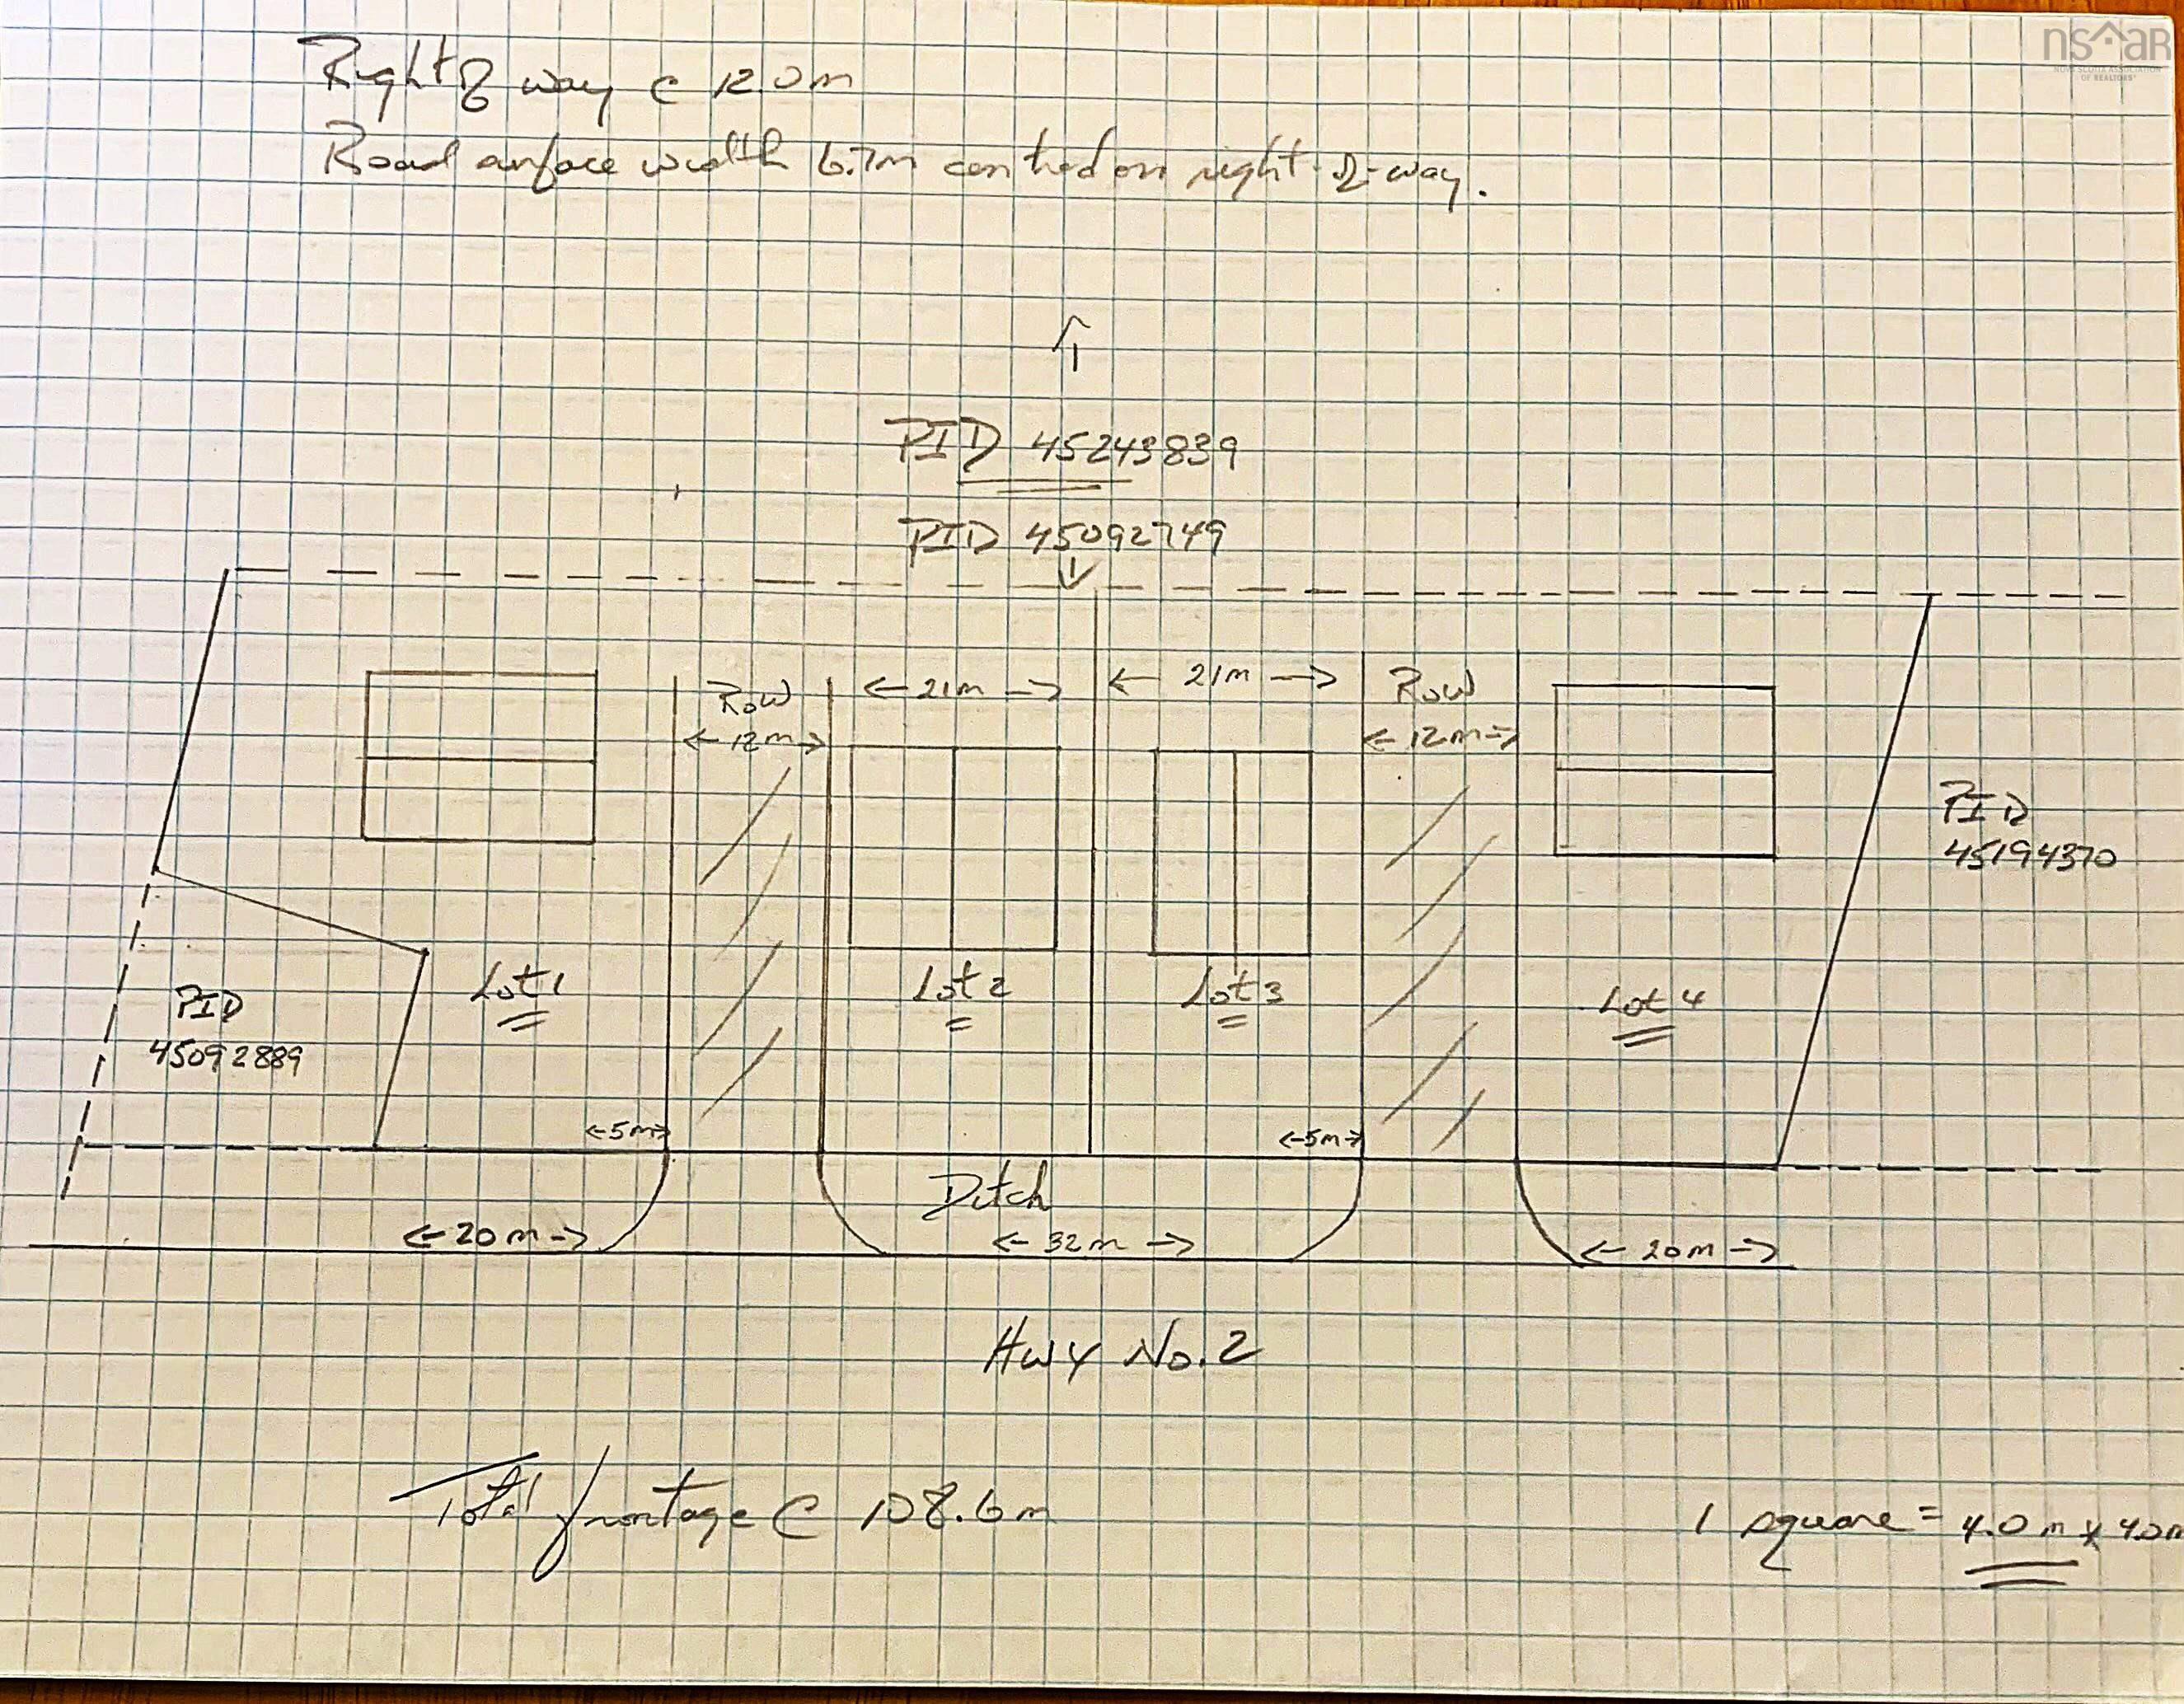 Right of way @ 12.0m
Road surface width 6.7m centred on right-of-way.
nsAR
NOVA SCOTIA ASSOCIATION
OF REALTORS
PID 45243839
PID 45092749
Row
12m
21m
21m
Row
12m
PID
45194370
Lot 1
Lot 2
Lot 3
Lot 4
PID
45092889
5m
5m
Ditch
20m
32m
20m
Hwy No. 2
Total frontage @ 108.6m
1 square = 4.0 m x 4.0m